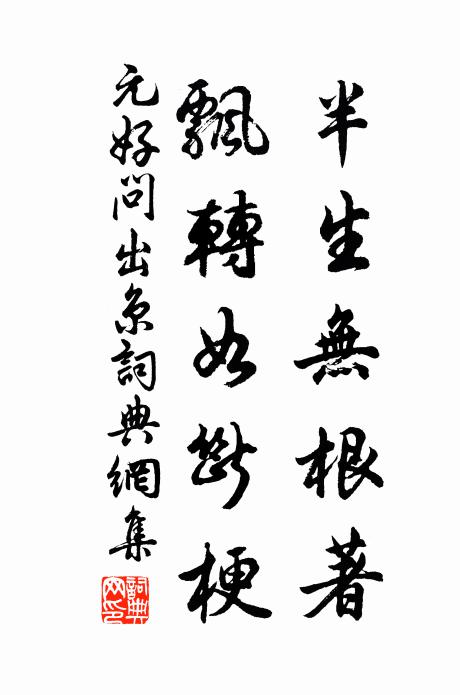 半生無根著
飄轉如斷梗
元好問出京詞典網集
詞典网印